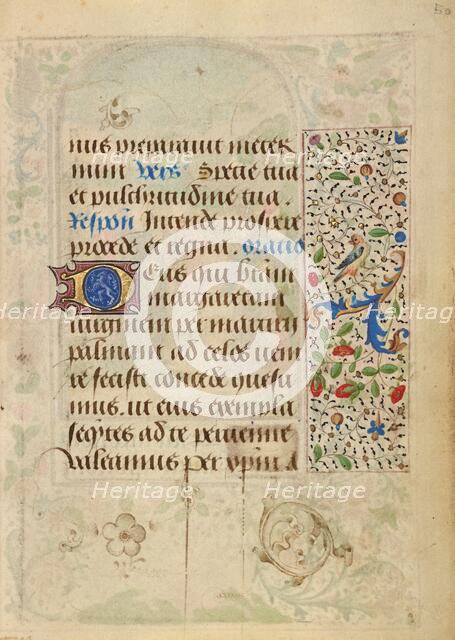 50
nus premiauit incter
num vers Specie tua
et pulchritudine tua.
Respon Intende prospere
procede et regna. oratio
Deus qui beatam
margaretam
virginem per martirii
palmam ad celos veni
re fecisti concede quesu
mus. ut eius exempla
seqntes ad te peruenire
valeamus per xpm
heritage
Heritage
Images